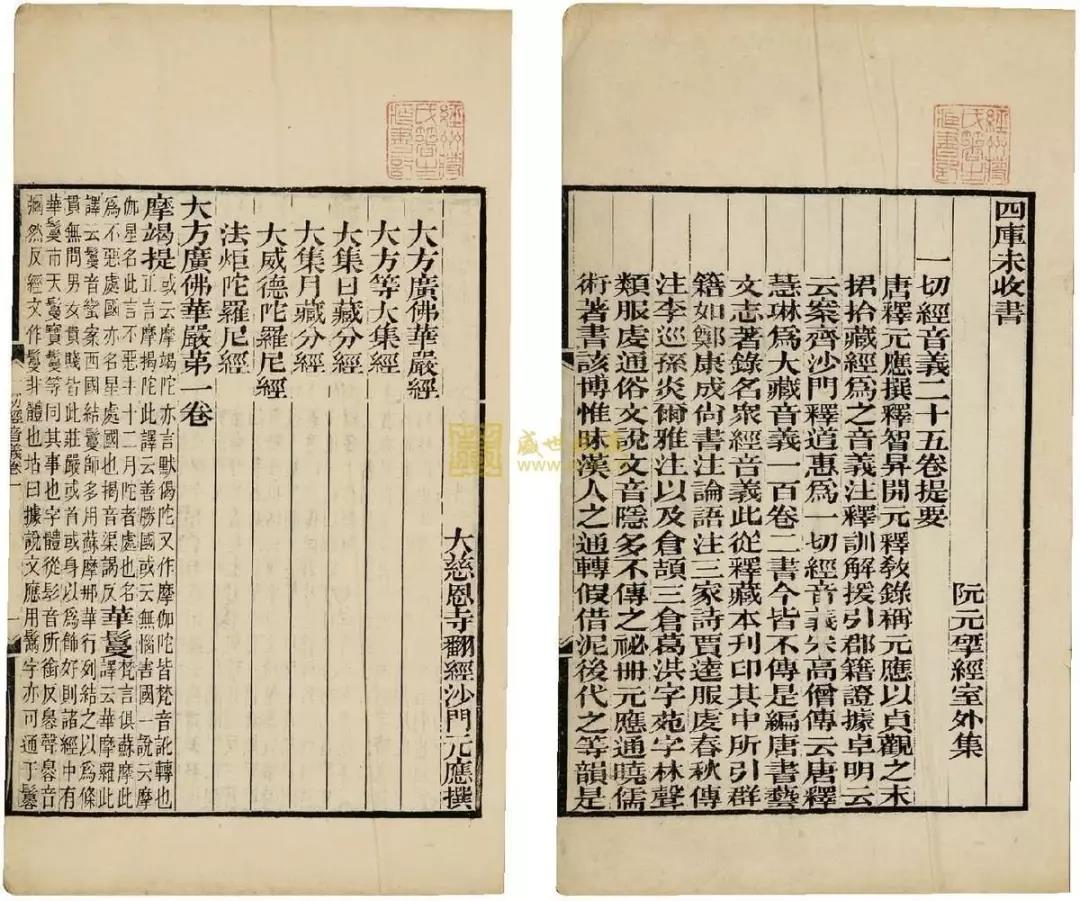 四庫未收書
一切經音義二十五卷提要
阮元揅經室外集
唐釋元應撰釋智昇開元釋敎錄稱元應以貞觀之末
捃拾藏經爲之音義注釋訓解援引郡籍證據卓明云
云案齊沙門釋道惠爲一切經音義宋高僧傳云唐釋
慧琳爲大藏音義一百卷二書今皆不傳是編唐書藝
文志著錄名衆經音義此從釋藏本刊印其中所引群
籍如鄭康成尙書注論語注三家詩賈逵服虔春秋傳
注李巡孫炎爾雅注以及倉頡三倉葛洪字苑字林聲
類服虔通俗文說文音隱多不傳之祕册元應通曉儒
術著書該博惟昧漢人之通轉假借泥後代之等韻是
大慈恩寺翻經沙門元應撰
大方廣佛華嚴經
大方等大集經
大集日藏分經
大集月藏分經
大威德陀羅尼經
法炬陀羅尼經
大方廣佛華嚴第一卷
摩竭提或云摩竭陀亦言默偈陀又作摩伽陀皆梵音訛轉也
正言摩揭陀此譯云善勝國或云無惱害國一說云摩
伽星名此言不惡主十二月陀者處也名
爲不惡處國亦名星處國也揭音渠謁反華鬘梵言俱蘇摩此
譯云華摩羅此
譯云鬘音蠻案西國結鬘師多用蘇摩那華行列結之以爲條
貫無問男女貴賤皆此莊嚴或首或身以爲飾好則諸經中有
華鬘市天鬘寶鬘等同其事也字體從髟音所銜反臱聲臱音
彌然反經文作鬘非體也坫曰據說文應用鬗字亦可通于鬘
切經音義卷一
盛世
www.